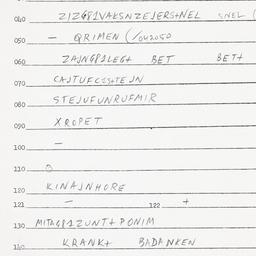 040 ZIZG81VAKSNZEJERS+NEL SNEL (
050 — QRIMEN (/042050
060 ZAJNGP1LEG+ BET BET+
070 CAJTUFCIS+EJN
080 STEJUFUNRUFMIR
090 XROPET
100 —
110 O
120 KINAJNHORE
121 — 122 +
130 MITAG812UNT+PONIM
KRANK+ BADANKEN